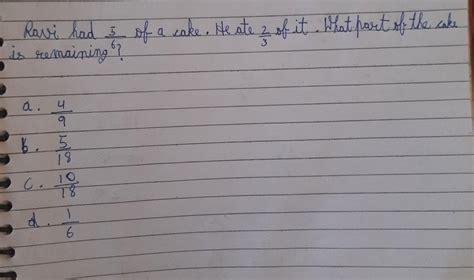 Ravi had 5/6 of a cake. He ate 2/3 of it. What part of the cake
is remaining?
a. 4/9
b. 5/18
c. 10/18
d. 1/6